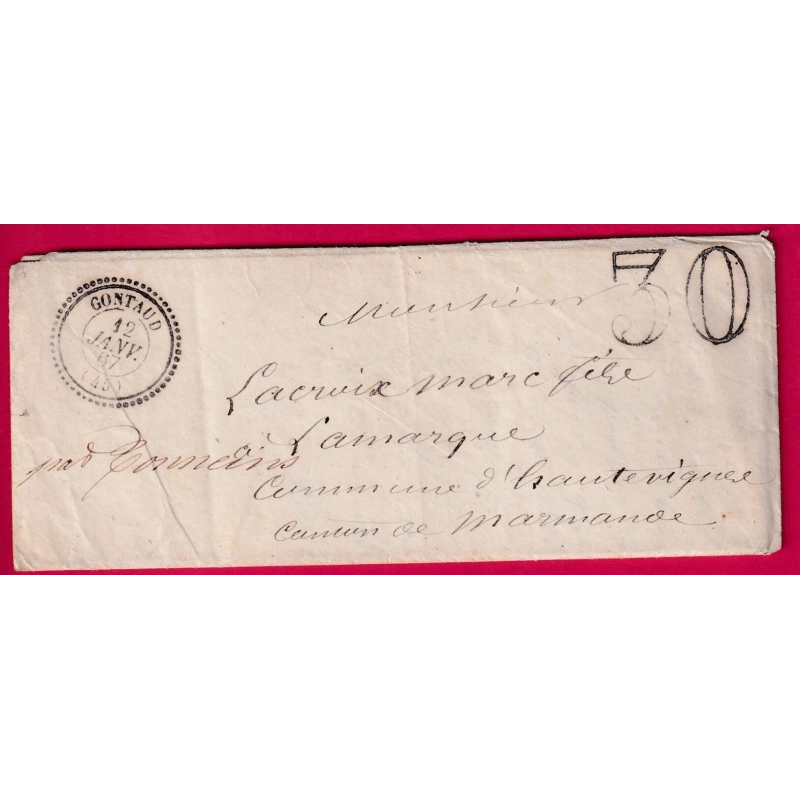 GONTAUD
12
JANV.
67
(45)
30
Monsieur
Lacroix marc fils
à Lamarque
Commune d'hautevignes
Canton de Marmande
par Tonneins